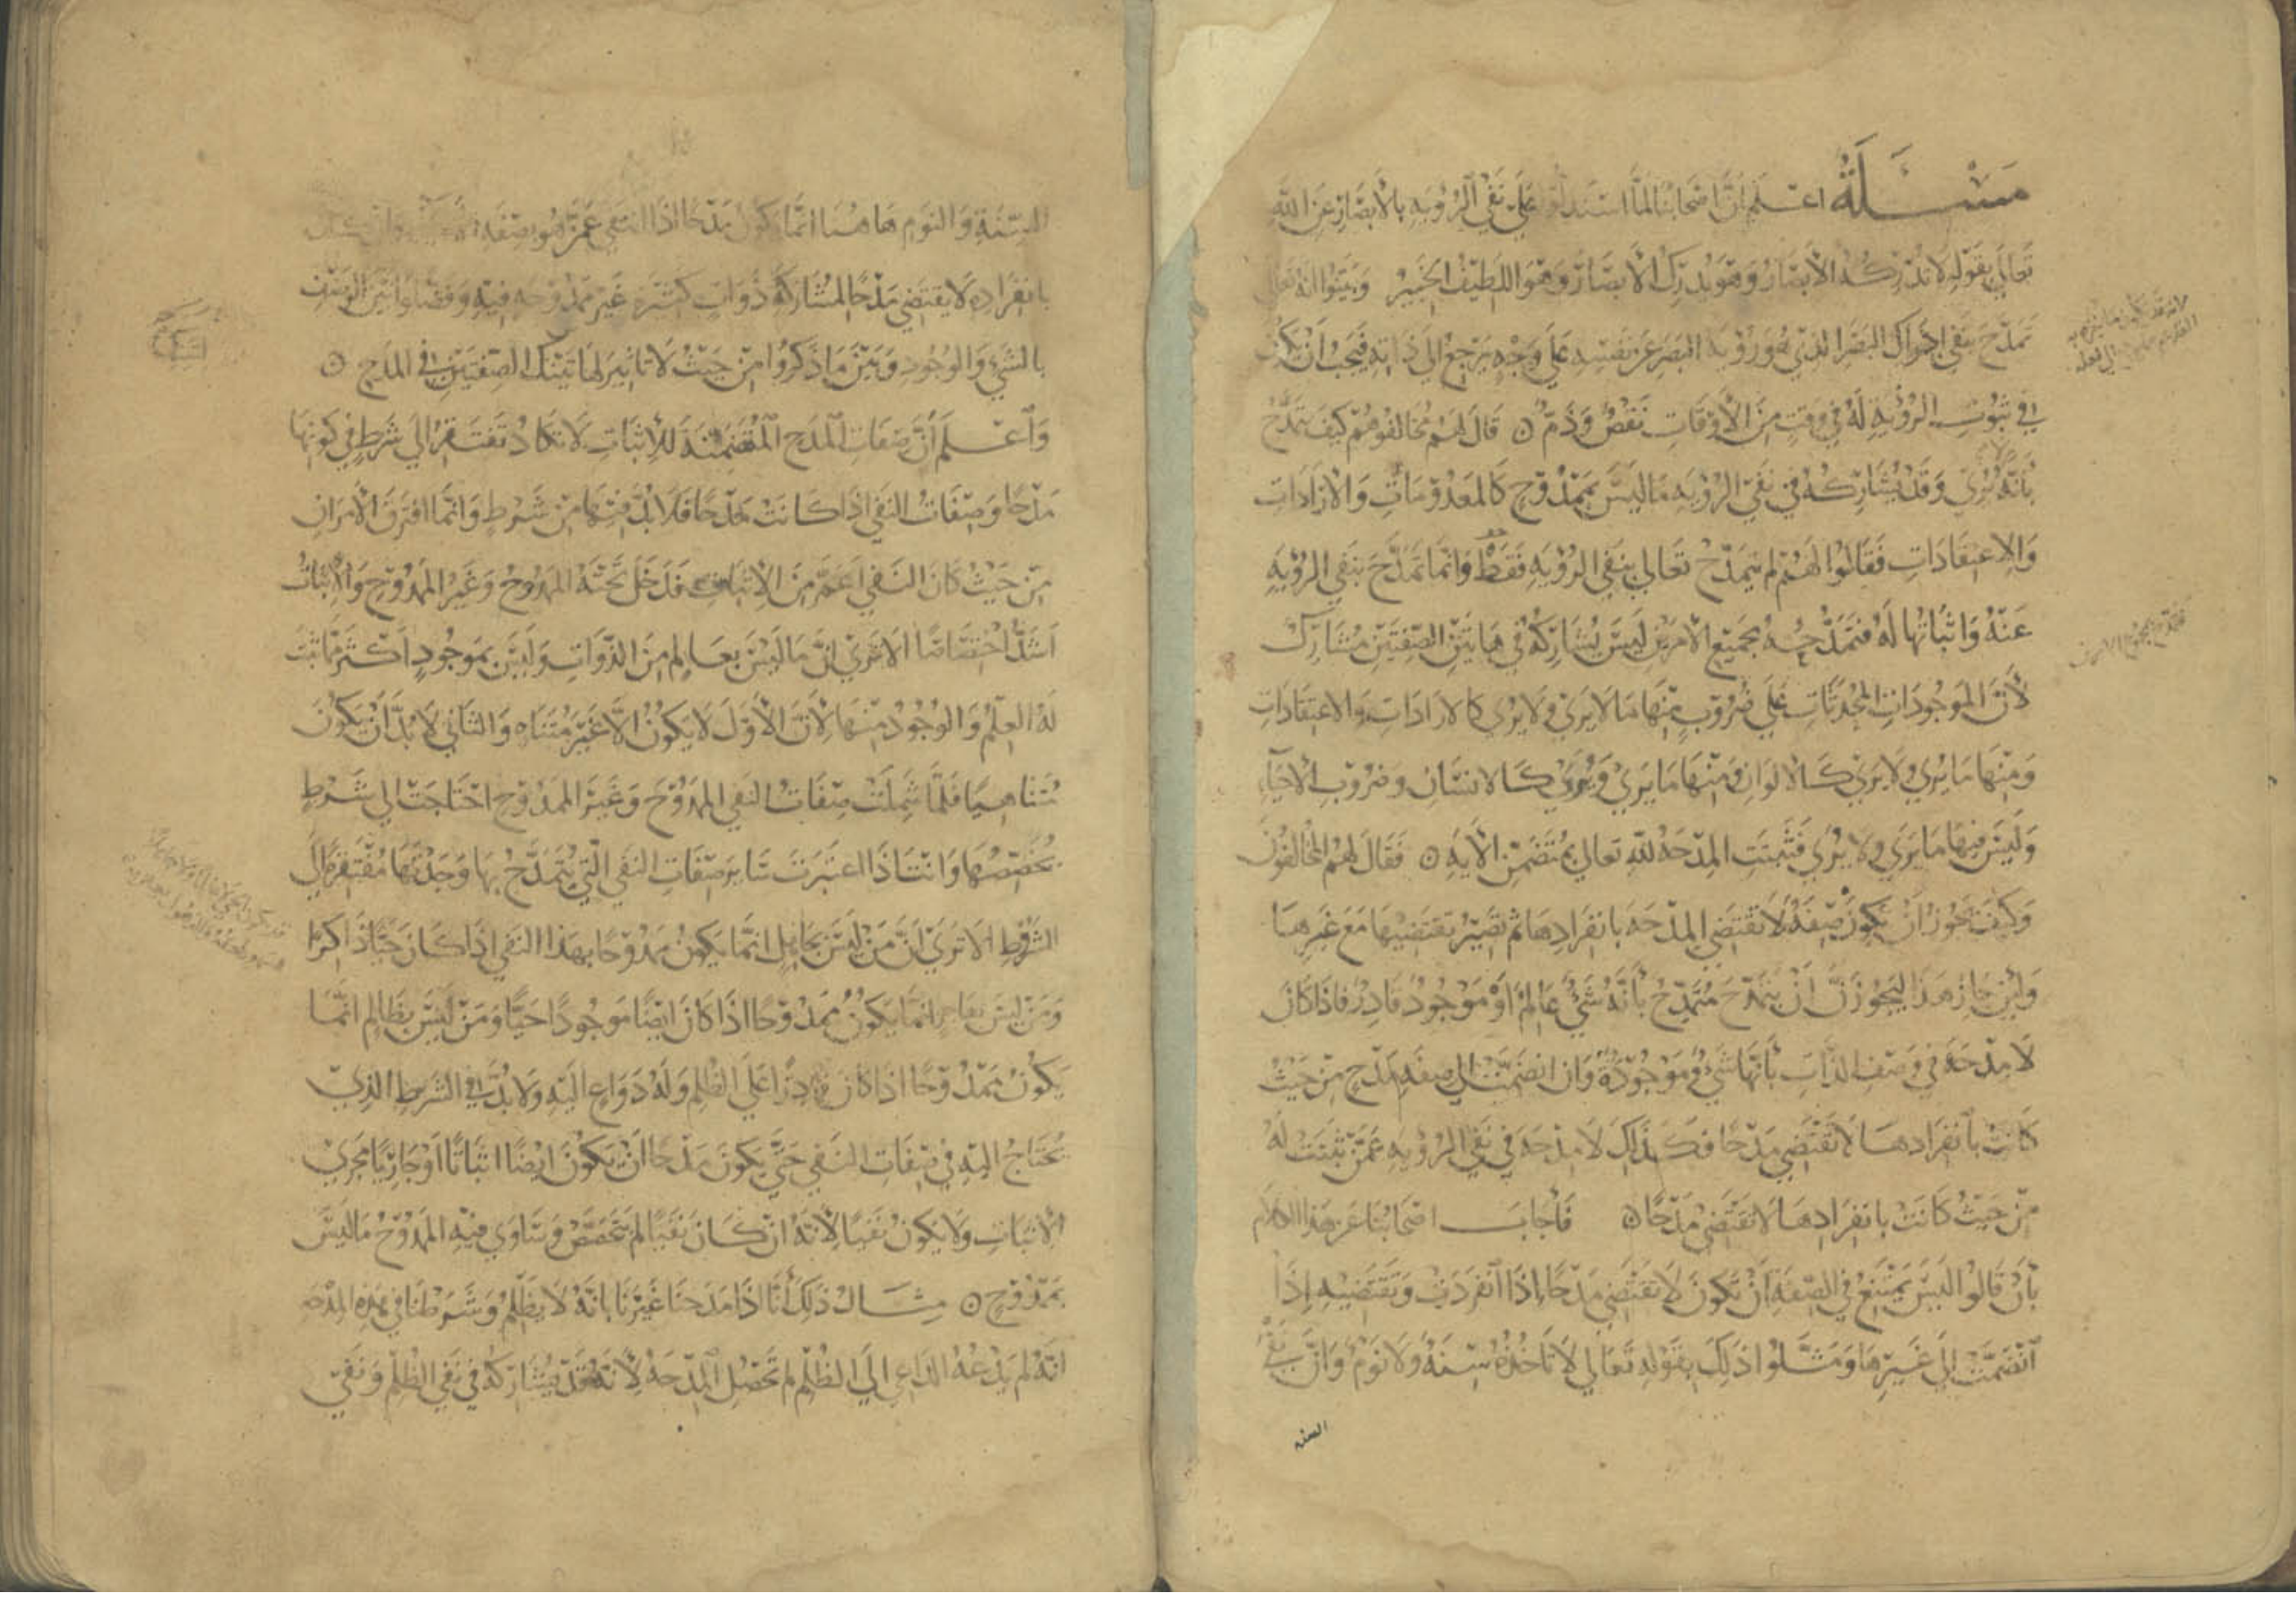 مسئلة اعلم ان اصحابنا لما استدلوا على نفي الرؤيه بالأبصار عن الله
تعالى بقوله لا تدركه الابصار وهو يدرك الابصار وهو اللطيف الخبير وبينوا انه تعالى
تمدح بنفي ادراك البصر الذي هو رؤية البصر عن نفسه على وجه يرجع الى ذاته فيجب ان يكون
في ثبوت الرؤية له في وقت من الأوقات نقص وذم ۝ قال لهم مخالفوهم كيف يتمدح
بأنه لا يرى وقد يشاركه في نفي الرؤيه ما ليس بممدوح كالمعدومات والارادات
والاعتقادات فقالوا لهم لم يتمدح تعالى بنفي الرؤيه فقط وانما تمدح بنفي الرؤيه
عنه واثباتها له فتمدحه بجميع الامرين ليس يشاركه في هاتين الصفتين مشارك
لأن الموجودات المحدثات على ضروب منها ما لا يرى ولا يرى كالارادات والاعتقادات
ومنها ما يرى ولا يرى كالالوان ومنها ما يرى ويرى كالانسان وضروب الاحياء
وليس فيها ما يرى ولا يرى فثبتت المدحة لله تعالى بمتضمن الأيه ۝ فقال لهم المخالفون
وكيف يجوز ان يكون صفة لا تقتضي المدحة بانفرادها ثم تصير تقتضيها مع غيرها
ولئن جاز هذا ليجوزن ان يتمدح متمدح بأنه شيء عالم او موجود قادر فاذا كان
لا مدحة في وصف الذات بأنها شيء وموجودة وان انضمت الى صفه مدح من حيث
كانت بأنفرادها لا تقتضي مدحا فكذلك لا مدحة في نفي الرؤيه عمن يثبت له
من حيث كانت بانفرادها لا تقتضي مدحا ۝ فأجاب اصحابنا عن هذا الكلام
بأن قالوا ليس يمتنع في الصفة ان تكون لا تقتضي مدحا إذا انفردت وتقتضيه إذا
انضمت إلى غيرها ومثلوا ذلك بقوله تعالى لا تأخذه سنة ولا نوم وان نفي
السنه
السنة والنوم هاهنا انما يكون مدحا اذا انتفى عمن هو بصفة الاحياء وان كان
بانفراده لا يقتضي مدحا لمشاركة ذوات كثيرة غير ممدوحه فيه وفصلوا بين الوصف
بالشيء والوجود وبين ما ذكروا من حيث لا تاثير لهاتيك الصفتين في المدح ۝
واعلم أن صفات المدح المتضمنة للاثبات لا تكاد تفتقر الى شرط في كونها
مدحا وصفات النفي اذا كانت مدحا فلا بد فيها من شرط وانما افترق الأمران
من حيث كان النفي اعم من الاثبات فدخل تحته الممدوح وغير الممدوح والاثبات
اشد اختصاصا الا ترى ان ما ليس بعالم من الذوات وليس بموجود اكثر مما ثبت
له العلم والوجود منها لأن الأول لا يكون الا غير متناه والثاني لا بد أن يكون
متناهيا فلما شملت صفات النفي الممدوح وغير الممدوح احتاجت الى شرط
يخصصها وانت اذا اعتبرت سائر صفات النفي التي يتمدح بها وجدتها مفتقرة الى
الشرط الا ترى ان من ليس بجاهل انما يكون ممدوحا بهذا النفي اذا كان حيا ذاكرا
ومن ليس بعاجز انما يكون ممدوحا اذا كان ايضا موجودا حيا ومن ليس بظالم انما
يكون ممدوحا اذا كان قادرا على الظلم وله دواع اليه ولا بد في الشرط الذي
يحتاج اليه في صفات النفي حتى يكون مدحا ان يكون ايضا اثباتا او جاريا مجرى
الاثبات ولا يكون نفيا لأنه ان كان نفيا لم يتخصص وتساوى فيه الممدوح ما ليس
بممدوح ۝ مثال ذلك أنا اذا مدحنا غيرنا بانه لا يظلم وشرطنا في هذه المدحة
انه لم يدعه الداعي الى الظلم لم تحصل المدحة لأنه قد يشاركه في نفي الظلم ونفي